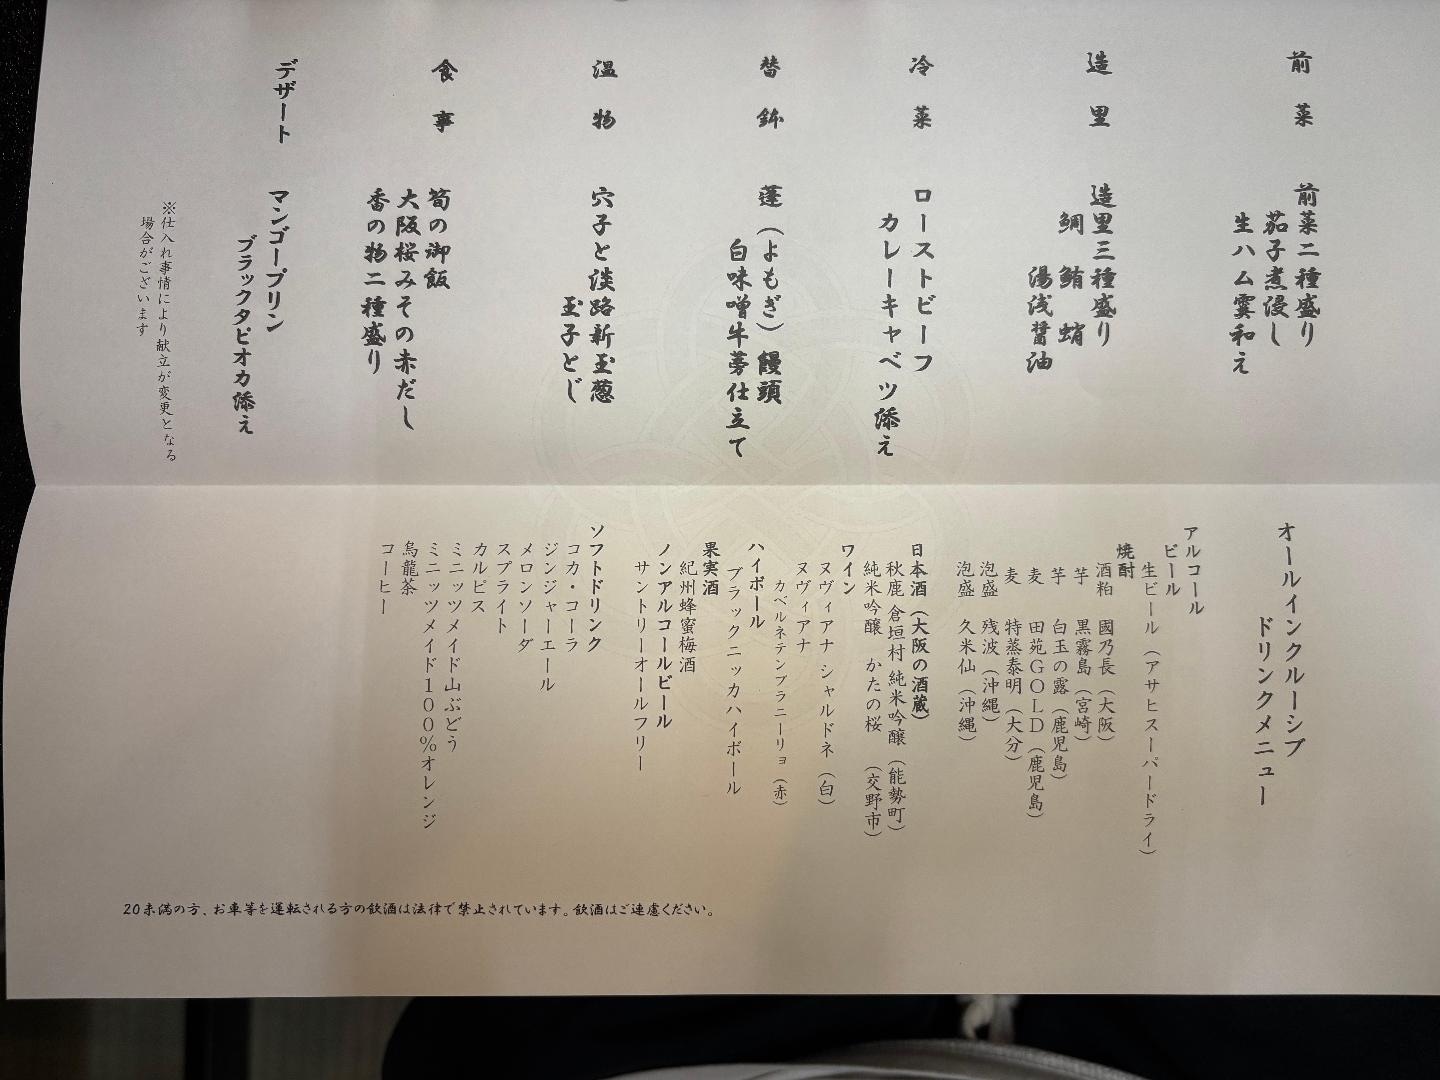 前菜
前菜二種盛り
茄子煮浸し
生ハム霙和え
造里
造里三種盛り
鯛 鮪 蛸
湯浅醤油
冷菜
ローストビーフ
カレーキャベツ添え
替鉢
蓬(よもぎ)饅頭
白味噌牛蒡仕立て
温物
穴子と淡路新玉葱
玉子とじ
食事
筍の御飯
大阪桜みその赤だし
香の物二種盛り
デザート
マンゴープリン
ブラックタピオカ添え
※仕入れ事情により献立が変更となる
場合がございます
オールインクルーシブ
ドリンクメニュー
アルコール
ビール
生ビール(アサヒスーパードライ)
焼酎
酒粕 國乃長(大阪)
芋 黒霧島(宮崎)
芋 白玉の露(鹿児島)
麦 田苑GOLD(鹿児島)
麦 特蒸泰明(大分)
泡盛 残波(沖縄)
泡盛 久米仙(沖縄)
日本酒(大阪の酒蔵)
秋鹿 倉垣村 純米吟醸(能勢町)
純米吟醸 かたの桜 (交野市)
ワイン
ヌヴィアナ シャルドネ(白)
ヌヴィアナ
カベルネテンプラニーリョ(赤)
ハイボール
ブラックニッカハイボール
果実酒
紀州蜂蜜梅酒
ノンアルコールビール
サントリーオールフリー
ソフトドリンク
コカ・コーラ
ジンジャーエール
メロンソーダ
スプライト
カルピス
ミニッツメイド山ぶどう
ミニッツメイド100%オレンジ
烏龍茶
コーヒー
20未満の方、お車等を運転される方の飲酒は法律で禁止されています。飲酒はご遠慮ください。